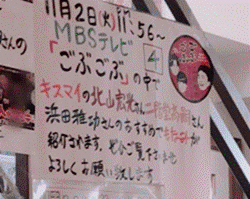 11月2日(火)11:56〜
MBSテレビ 4
「ごぶごぶ」の中で
キスマイの北山宏光さん二階堂高嗣さん
浜田雅功さんのおすすめで
紹介されます。ぜひご覧下さいませ
よろしくお願い致します
さんの